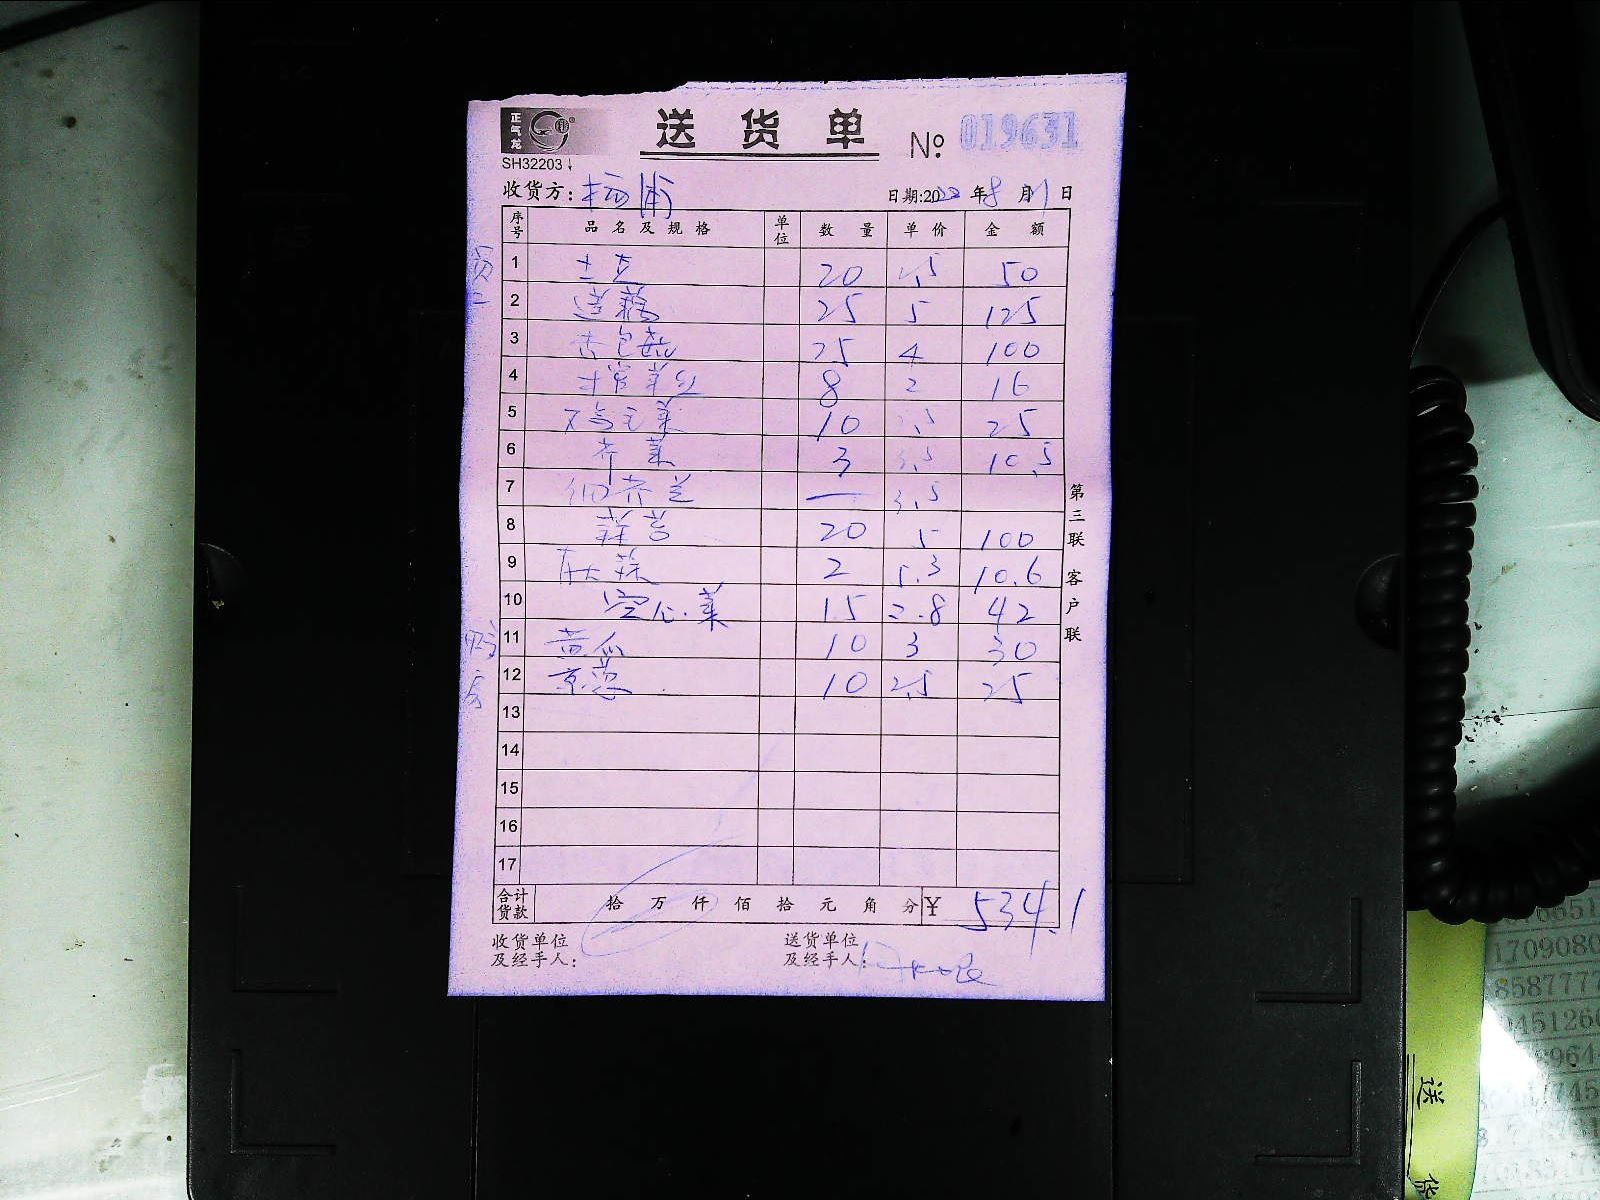 正气龙
送货单 No. 019631
SH32203
收货方: 杨浦 日期:2022年8月1日
序号 品名及规格 单位 数量 单价 金额
1 土豆 20 2.5 50
2 莲藕 25 5 125
3 杏包菇 25 4 100
4 8 2 16
5 10 2.5 25
6 芹菜 3 3.5 10.5
7 芥兰 — 3.5
8 20 5 100
9 2 5.3 10.6
10 空心菜 15 2.8 42
11 黄瓜 10 3 30
12 京葱 10 2.5 25
13
14
15
16
17
合计货款 拾 万 仟 佰 拾 元 角 分 ¥ 534.1
收货单位及经手人:
送货单位及经手人:
第三联 客户联
送
货